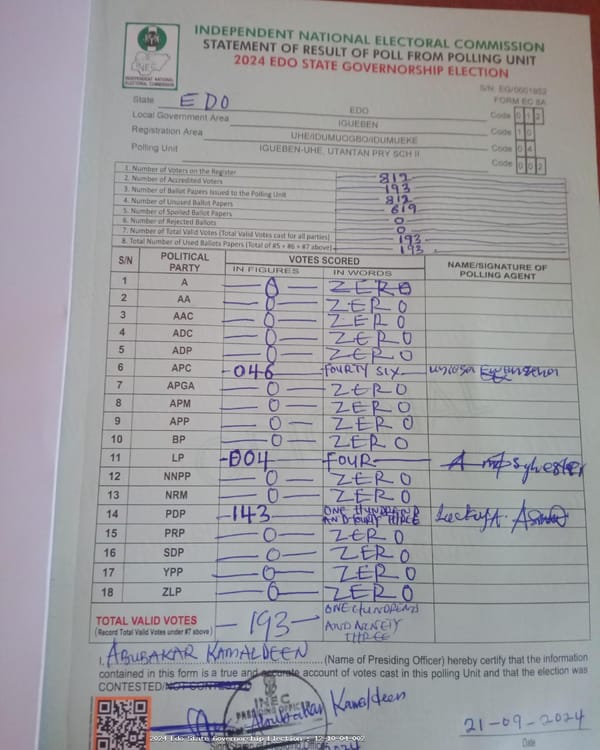 INDEPENDENT NATIONAL ELECTORAL COMMISSION
STATEMENT OF RESULT OF POLL FROM POLLING UNIT
2024 EDO STATE GOVERNORSHIP ELECTION
INEC
INDEPENDENT NATIONAL ELECTORAL COMMISSION
S/N: EG/0001952
FORM EC 8A
State EDO EDO Code 0 1 2
Local Government Area IGUEBEN Code 1 0
Registration Area UHE/IDUMUOGBO/IDUMUEKE Code 0 4
Polling Unit IGUEBEN-UHE, UTANTAN PRY SCH II Code 0 0 2
1. Number of Voters on the Register 812
2. Number of Accredited Voters 193
3. Number of Ballot Papers Issued to the Polling Unit 812
4. Number of Unused Ballot Papers 619
5. Number of Spoiled Ballot Papers 0
6. Number of Rejected Ballots 0
7. Number of Total Valid Votes (Total Valid Votes cast for all parties) 193
8. Total Number of Used Ballots Papers (Total of #5 + #6 + #7 above) 193
S/N POLITICAL PARTY VOTES SCORED NAME/SIGNATURE OF POLLING AGENT
IN FIGURES IN WORDS
1 A 0 ZERO
2 AA 0 ZERO
3 AAC 0 ZERO
4 ADC 0 ZERO
5 ADP 0 ZERO
6 APC 046 FOURTY SIX
7 APGA 0 ZERO
8 APM 0 ZERO
9 APP 0 ZERO
10 BP 0 ZERO
11 LP 004 FOUR Sylvester
12 NNPP 0 ZERO
13 NRM 0 ZERO
14 PDP 143 ONE HUNDRAND AND FOURTY THREE Lucky A.
15 PRP 0 ZERO
16 SDP 0 ZERO
17 YPP 0 ZERO
18 ZLP 0 ZERO
TOTAL VALID VOTES 193 ONE HUNDRED AND NINETY THREE
(Record Total Valid Votes under #7 above)
I, ABUBAKAR KAMALDEEN (Name of Presiding Officer) hereby certify that the information
contained in this form is a true and accurate account of votes cast in this polling Unit and that the election was
CONTESTED/NOT CONTESTED
INEC
PRESIDING OFFICER
Abubakar Kamaldeen
21-09-2024
Date
2024 Edo State Governorship Election : 12-10-04-002